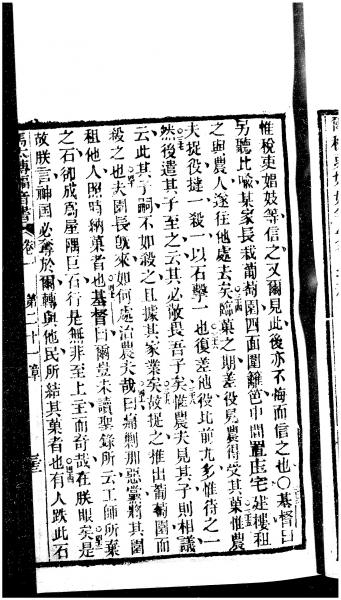 惟稅吏娼妓等信之又爾見此後亦不悔而信之也〇基督曰
另聽比喻某家長栽葡萄園四面圍籬笆中間置庄宅建樓租
之與農人遂往他處去矣臨菓之期差役見農得受其菓惟農
夫捉役撻一殺一以石擊一也復差他役比前尤多惟待之一
然後遣其子至之云其必敬畏吾子矣惟農夫見其子則相議
云此其子嗣不如殺之且據其家業矣故捉之推出葡萄園而
殺之也夫園長既來如何處治農夫哉曰痛剿那惡黨將其園
租他人照時納菓者也基督曰爾豈未讀聖錄所云工師所棄
之石卻成為屋隅巨石行是無非至上主而奇哉在朕眼矣是
故朕言神国必奪於爾轉與他民所結其菓者也有人跌此石
馬太傳福音書 卷一 第二十一章